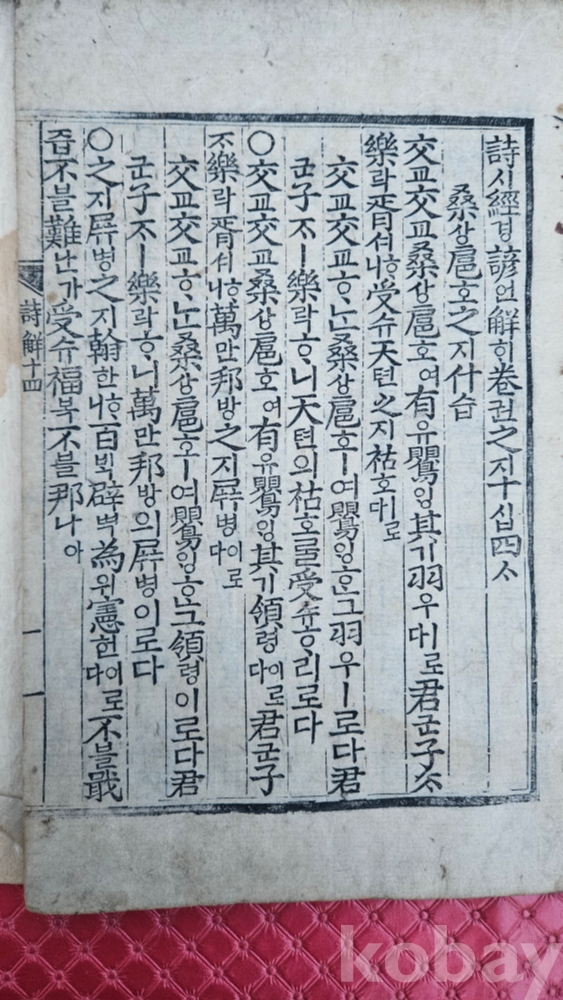 詩시經경諺언解ᄒᆡ卷권之지十십四ᄉᆞ
桑상扈호之지什습
交교交교桑상扈호여有유鸎ᄋᆡᆼ其기羽우ㅣ로다君군子ᄌᆞ
樂락胥셔ᄒᆞ니受슈天텬之지祜호ㅣ로다
交교交교ᄒᆞᄂᆞᆫ桑상扈호ㅣ여鸎ᄋᆡᆼᄒᆞᆫ그羽우ㅣ로다君
군子ᄌᆞㅣ樂락ᄒᆞ니天텬의祜호ᄅᆞᆯ受슈ᄒᆞ리로다
○交교交교桑상扈호여有유鸎ᄋᆡᆼ其기領령이로다君군子
ᄌᆞ樂락胥셔ᄒᆞ니萬만邦방之지屛병이로다
交교交교ᄒᆞᄂᆞᆫ桑상扈호ㅣ여鸎ᄋᆡᆼᄒᆞᆫ그領령이로다君
군子ᄌᆞㅣ樂락ᄒᆞ니萬만邦방의屛병이로다
○之지屛병之지翰한ᄒᆞ니百ᄇᆡᆨ辟벽爲위憲헌이로다不블戢
즙不블難난가受슈福복不블那나아
詩解十四
一
kobay